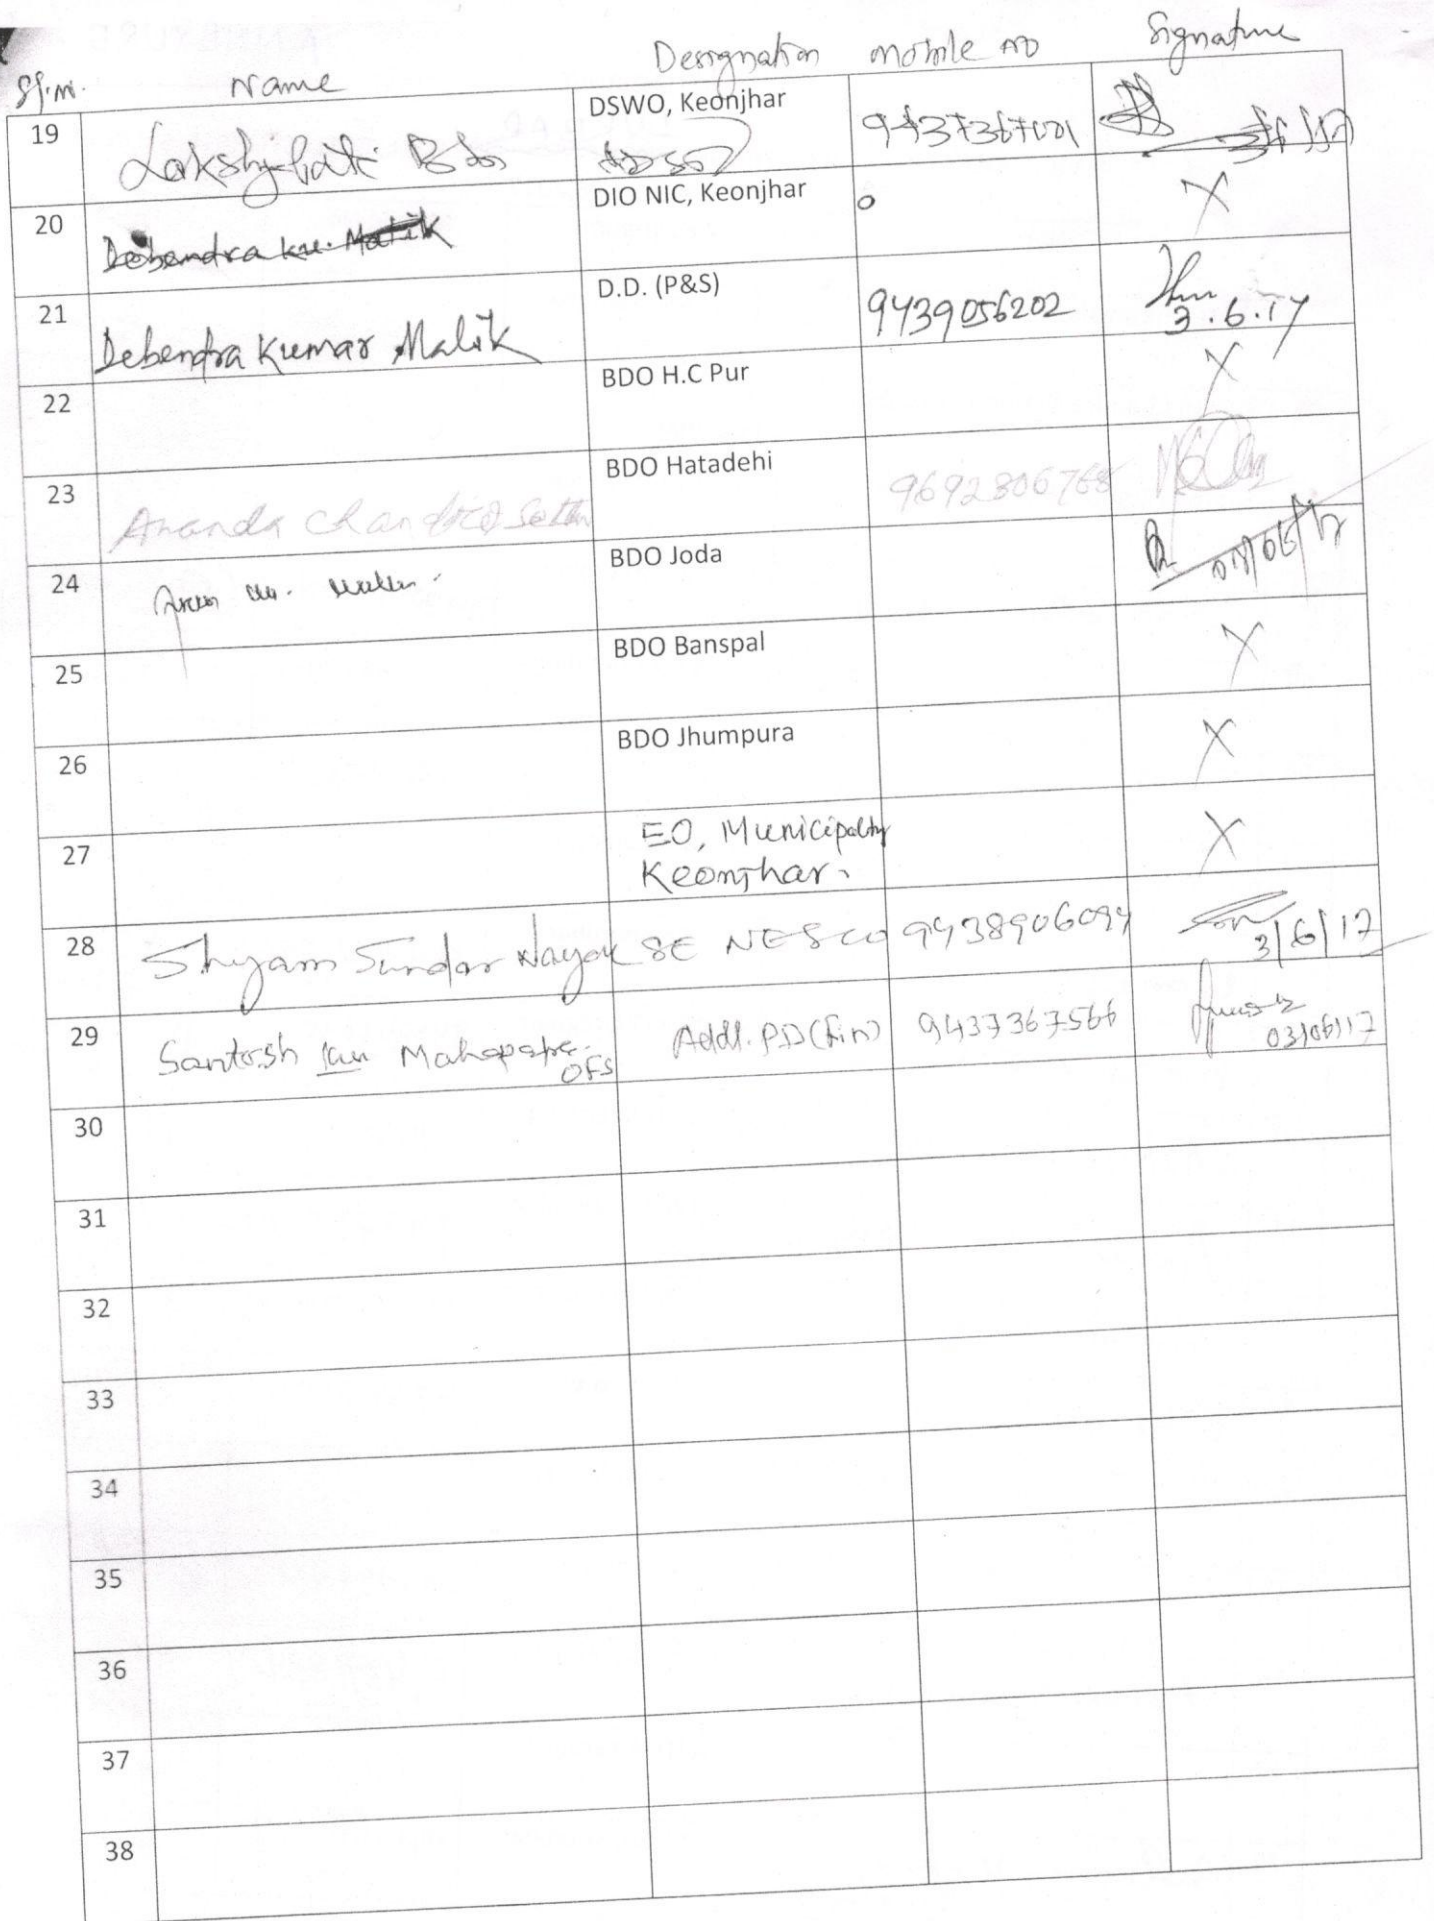 Sl.no. Name Designation Mobile no Signature
19 DSWO, Keonjhar
20 Debendra Ku. Malik DIO NIC, Keonjhar X
21 Debendra Kumar Malik D.D. (P&S) 9439056202 3.6.17
22 BDO H.C Pur X
23 Ananda Chandra Sethi BDO Hatadehi 9692806768
24 BDO Joda
25 BDO Banspal X
26 BDO Jhumpura X
27 EO, Municipality X
Keonjhar.
28 Shyam Sundar Nayak SE NESCO 9438906094 3/6/17
29 Santosh Kum Mahapatra. Addl. PD (Fin) 9437367566 03/06/17
OFS
30
31
32
33
34
35
36
37
38